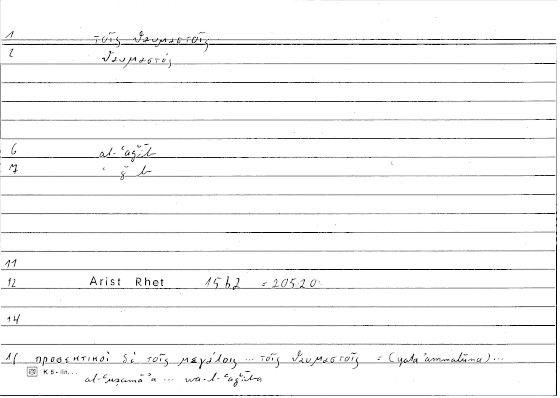 1 τοῖς θαυμαστοῖς
2 θαυμαστός
6 al-ʿaǧīb
7 ʿ ǧ b
11
12 Arist Rhet 15b2 = 205,20
14
15 προσεκτικοὶ δὲ τοῖς μεγάλοις ... τοῖς θαυμαστοῖς = (yataʾammalūna) ...
K 5 - lin. ...
al-ʿuẓamāʾa ... wa-l-ʿaǧība